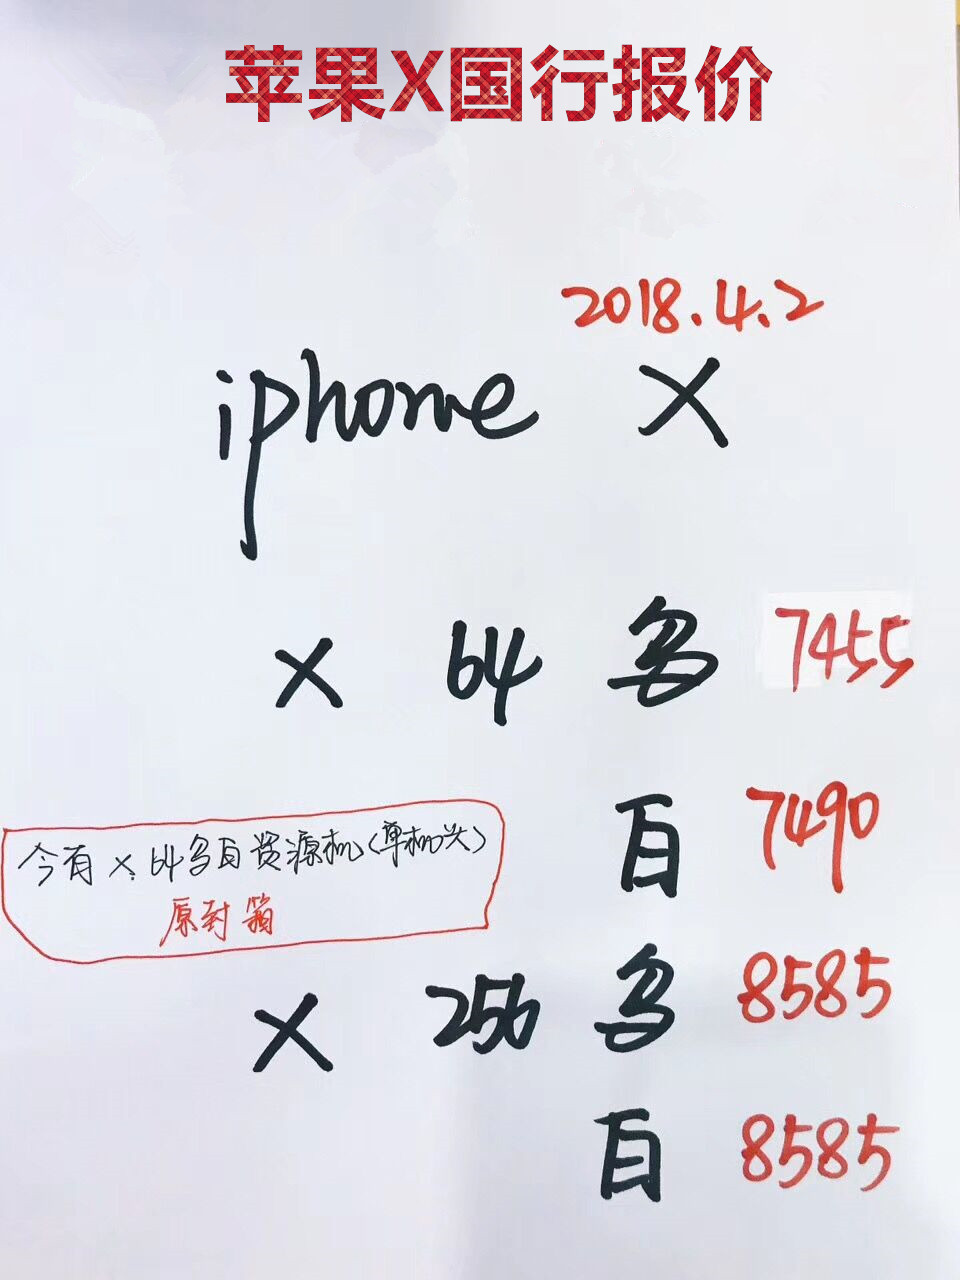 苹果X国行报价
2018.4.2
iphone X
X 64 多 7455
白 7490
今有X.64多白资源机(单机头)
原封箱
X 256 多 8585
白 8585